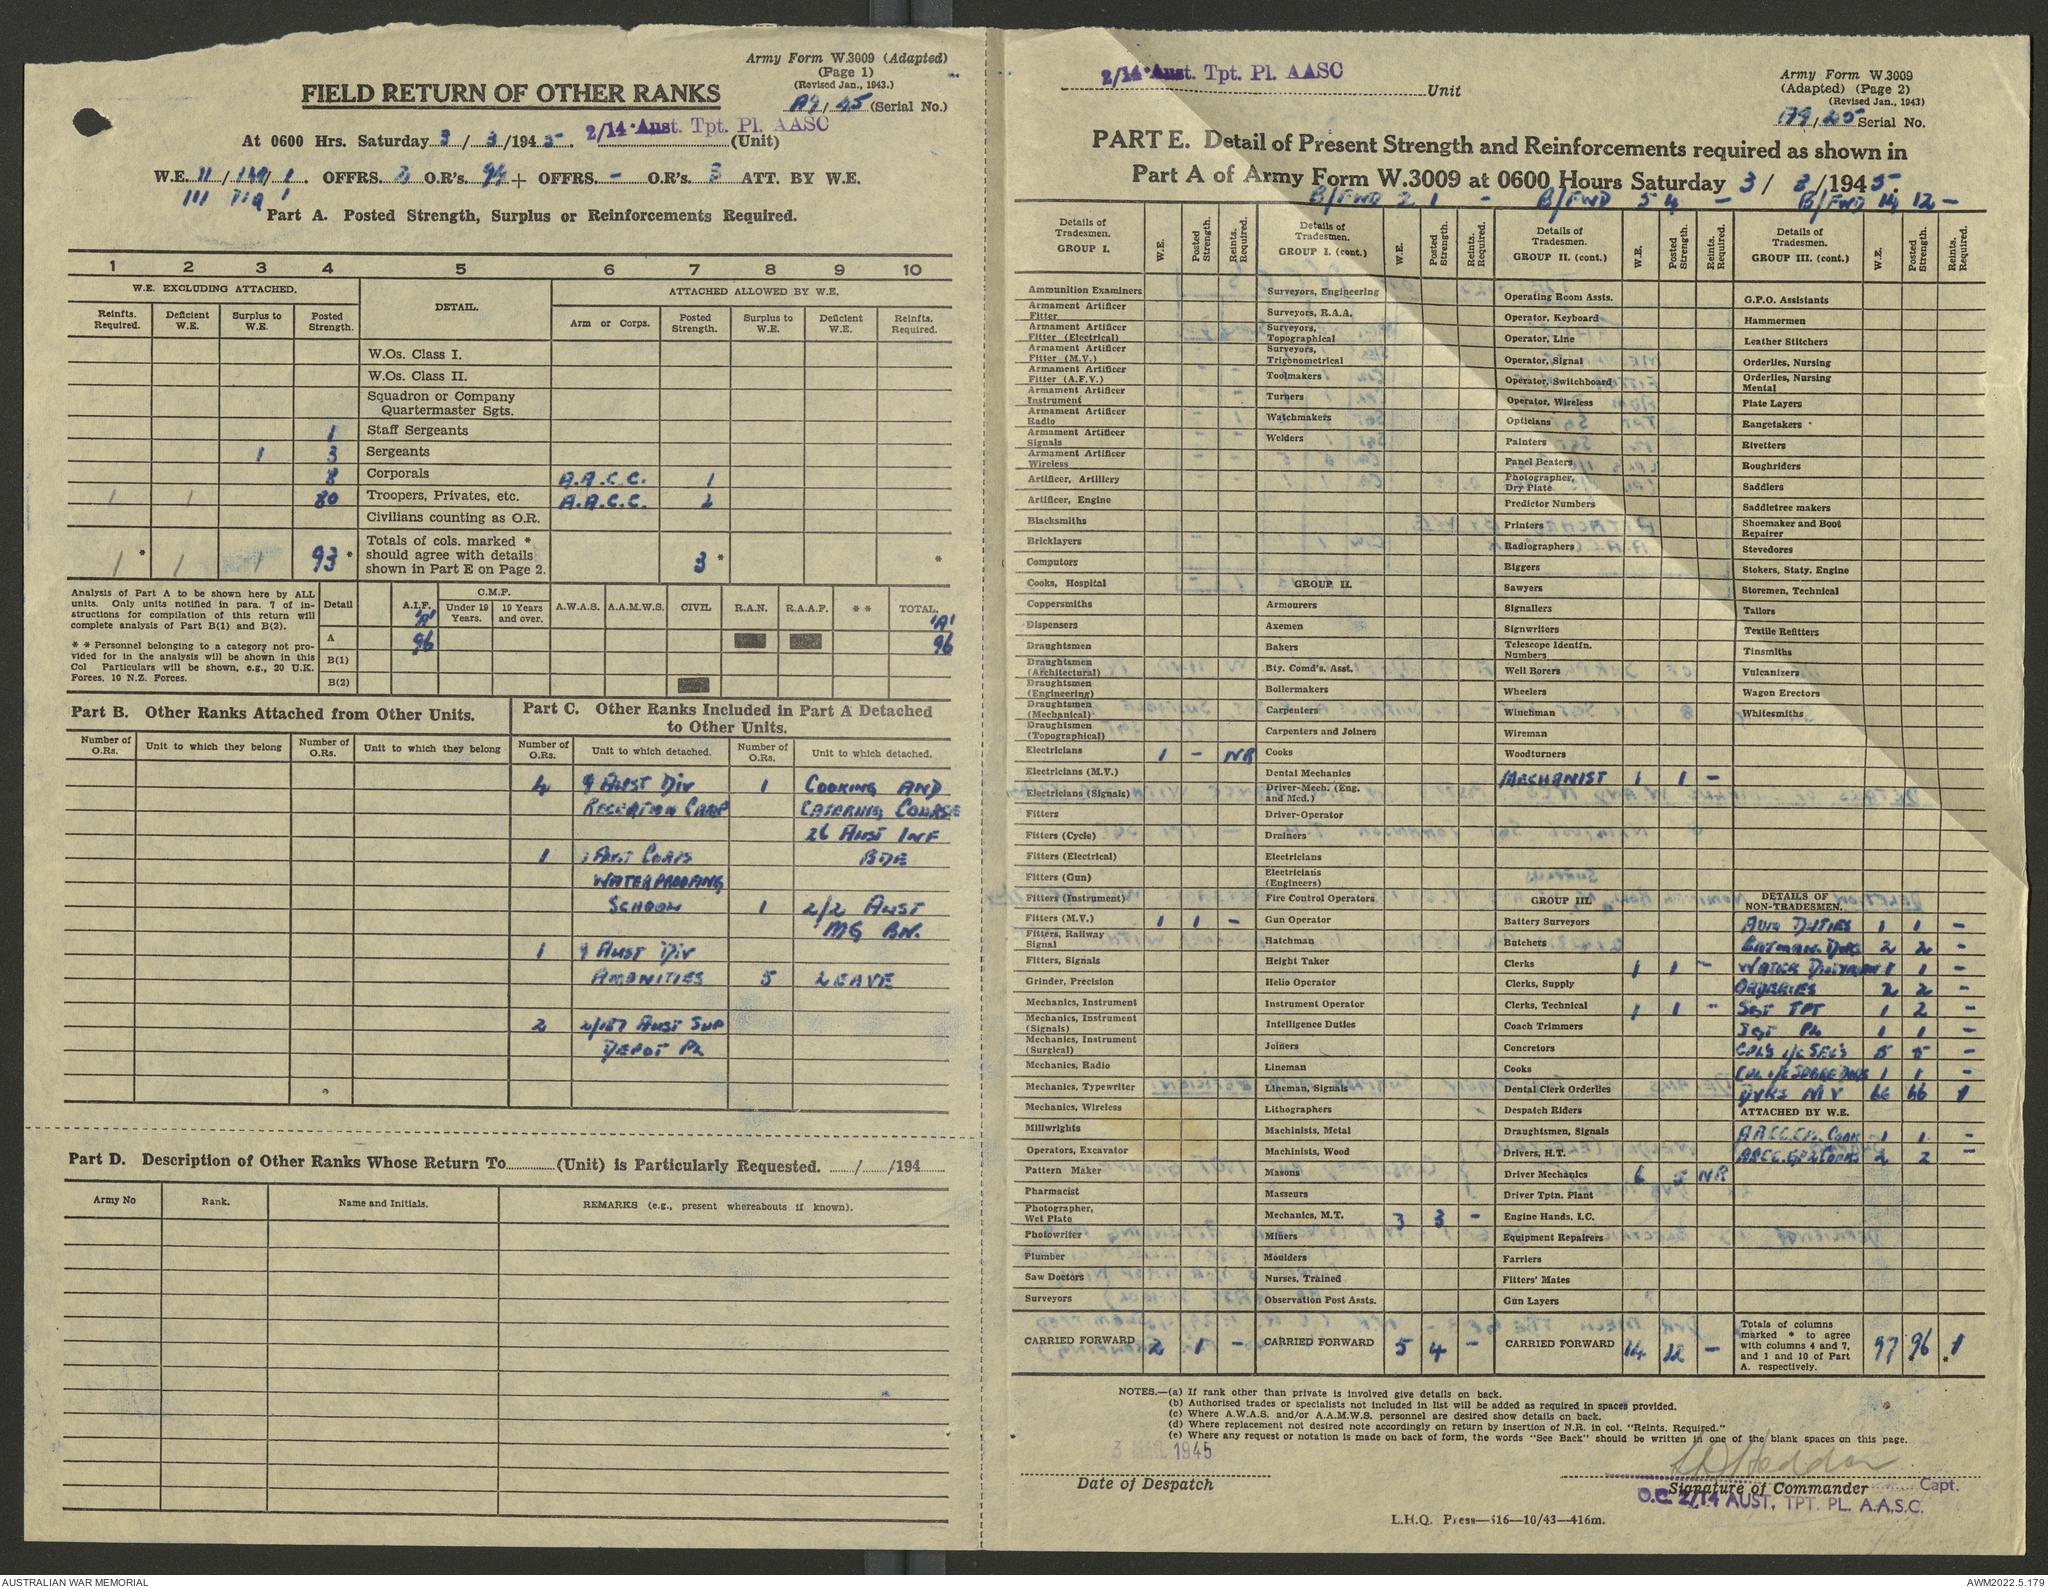 Army Form W.3009 (Adapted)
(Page 1)
(Revised Jan., 1943.)
FIELD RETURN OF OTHER RANKS
A9/45 (Serial No.)
At 0600 Hrs. Saturday 3/3/1945. 2/14 Aust. Tpt. Pl. AASC (Unit)
W.E. 11/ /1. OFFRS. O.R's. 94 + OFFRS. - O.R's. 3 ATT. BY W.E.
III 1
Part A. Posted Strength, Surplus or Reinforcements Required.
1 2 3 4 5 6 7 8 9 10
W.E. EXCLUDING ATTACHED. DETAIL. ATTACHED ALLOWED BY W.E.
Reinfts. Required. Deficient W.E. Surplus to W.E. Posted Strength. Arm or Corps. Posted Strength. Surplus to W.E. Deficient W.E. Reinfts. Required.
W.Os. Class I.
W.Os. Class II.
Squadron or Company
Quartermaster Sgts.
1 Staff Sergeants
1 3 Sergeants
8 Corporals A.A.C.C. 1
1 1 80 Troopers, Privates, etc. A.A.C.C. 2
Civilians counting as O.R.
1 * 1 1 93 * Totals of cols. marked * should agree with details shown in Part E on Page 2. 3 * *
Analysis of Part A to be shown here by ALL units. Only units notified in para. 7 of instructions for compilation of this return will complete analysis of Part B(1) and B(2).
* * Personnel belonging to a category not provided for in the analysis will be shown in this Col Particulars will be shown, e.g., 20 U.K. Forces, 10 N.Z. Forces.
Detail A.I.F. C.M.F. Under 19 Years. 19 Years and over. A.W.A.S. A.A.M.W.S. CIVIL R.A.N. R.A.A.F. * * TOTAL.
'A' 'A'
A 96 96
B(1)
B(2)
Part B. Other Ranks Attached from Other Units.
Number of O.Rs. Unit to which they belong Number of O.Rs. Unit to which they belong
Part C. Other Ranks Included in Part A Detached to Other Units.
Number of O.Rs. Unit to which detached. Number of O.Rs. Unit to which detached.
4 9 AUST DIV 1 COOKING AND
RECEPTION CAMP CATERING COURSE
26 AUST INF
1 1 AUST CORPS BDE
WATERPROOFING
SCHOOL 1 2/2 AUST
MG BN.
1 9 AUST DIV
AMENITIES 5 LEAVE
2 2/157 AUST SUP
DEPOT PL
Part D. Description of Other Ranks Whose Return To (Unit) is Particularly Requested. / /194
Army No Rank. Name and Initials. REMARKS (e.g., present whereabouts if known).
2/14 Aust. Tpt. Pl. AASC Unit
Army Form W.3009
(Adapted) (Page 2)
(Revised Jan., 1943)
A9/45 Serial No.
PART E. Detail of Present Strength and Reinforcements required as shown in
Part A of Army Form W.3009 at 0600 Hours Saturday 3/3/1945.
B/FWD 2 1 - B/FWD 5 4 - B/FWD 14 12 -
Details of Tradesmen. GROUP I. W.E. Posted Strength. Reints. Required.
Ammunition Examiners
Armament Artificer Fitter
Armament Artificer Fitter (Electrical)
Armament Artificer Fitter (M.V.)
Armament Artificer Fitter (A.F.V.)
Armament Artificer Instrument
Armament Artificer Radio
Armament Artificer Signals
Armament Artificer Wireless
Artificer, Artillery
Artificer, Engine
Blacksmiths
Bricklayers
Computors
Cooks, Hospital
Coppersmiths
Dispensers
Draughtsmen
Draughtsmen (Architectural)
Draughtsmen (Engineering)
Draughtsmen (Mechanical)
Draughtsmen (Topographical)
Electricians 1 - NR
Electricians (M.V.)
Electricians (Signals)
Fitters
Fitters (Cycle)
Fitters (Electrical)
Fitters (Gun)
Fitters (Instrument)
Fitters (M.V.) 1 1 -
Fitters, Railway Signal
Fitters, Signals
Grinder, Precision
Mechanics, Instrument
Mechanics, Instrument (Signals)
Mechanics, Instrument (Surgical)
Mechanics, Radio
Mechanics, Typewriter
Mechanics, Wireless
Millwrights
Operators, Excavator
Pattern Maker
Pharmacist
Photographer, Wet Plate
Photowriter
Plumber
Saw Doctors
Surveyors
CARRIED FORWARD 2 1 -
Details of Tradesmen. GROUP I. (cont.) W.E. Posted Strength. Reints. Required.
Surveyors, Engineering
Surveyors, R.A.A.
Surveyors, Topographical
Surveyors, Trigonometrical
Toolmakers
Turners
Watchmakers
Welders
GROUP II.
Armourers
Axemen
Bakers
Bty. Comd's. Asst.
Boilermakers
Carpenters
Carpenters and Joiners
Cooks
Dental Mechanics
Driver-Mech. (Eng. and Med.)
Driver-Operator
Drainers
Electricians
Electricians (Engineers)
Fire Control Operators
Gun Operator
Hatchman
Height Taker
Helio Operator
Instrument Operator
Intelligence Duties
Joiners
Lineman
Lineman, Signals
Lithographers
Machinists, Metal
Machinists, Wood
Masons
Masseurs
Mechanics, M.T. 3 3 -
Miners
Moulders
Nurses, Trained
Observation Post Assts.
CARRIED FORWARD 5 4 -
Details of Tradesmen. GROUP II. (cont.) W.E. Posted Strength. Reints. Required.
Operating Room Assts.
Operator, Keyboard
Operator, Line
Operator, Signal
Operator, Switchboard
Operator, Wireless
Opticians
Painters
Panel Beaters
Photographer, Dry Plate
Predictor Numbers
Printers
Radiographers
Riggers
Sawyers
Signallers
Signwriters
Telescope Identfn. Numbers
Well Borers
Wheelers
Winchman
Wireman
Woodturners
MECHANIST 1 1 -
GROUP III.
Battery Surveyors
Butchers
Clerks 1 1 -
Clerks, Supply
Clerks, Technical 1 1 -
Coach Trimmers
Concretors
Cooks
Dental Clerk Orderlies
Despatch Riders
Draughtsmen, Signals
Drivers, H.T.
Driver Mechanics 6 5 NR
Driver Tptn. Plant
Engine Hands, I.C.
Equipment Repairers
Farriers
Fitters' Mates
Gun Layers
CARRIED FORWARD 14 12 -
Details of Tradesmen. GROUP III. (cont.) W.E. Posted Strength. Reints. Required.
G.P.O. Assistants
Hammermen
Leather Stitchers
Orderlies, Nursing
Orderlies, Nursing Mental
Plate Layers
Rangetakers
Rivetters
Roughriders
Saddlers
Saddletree makers
Shoemaker and Boot Repairer
Stevedores
Stokers, Staty. Engine
Storemen, Technical
Tailors
Textile Refitters
Tinsmiths
Vulcanizers
Wagon Erectors
Whitesmiths
DETAILS OF NON-TRADESMEN.
ADM DUTIES 1 1 -
BATMAN. DVRS 2 2 -
WATER DUTYMAN 1 1 -
ORDERLIES 2 2 -
SGT TPT 1 2 -
SGT PL 1 1 -
CPLS i/c SECS 5 5 -
CPL i/c SPARE DVRS 1 1 -
DVRS M V 66 66 1
ATTACHED BY W.E.
AACC.CPL. COOK 1 1 -
AACC. GP2 COOKS 2 2 -
Totals of columns marked * to agree with columns 4 and 7, and 1 and 10 of Part A. respectively. 97 96 * 1
NOTES.—(a) If rank other than private is involved give details on back.
(b) Authorised trades or specialists not included in list will be added as required in spaces provided.
(c) Where A.W.A.S. and/or A.A.M.W.S. personnel are desired show details on back.
(d) Where replacement not desired note accordingly on return by insertion of N.R. in col. "Reints. Required."
(e) Where any request or notation is made on back of form, the words "See Back" should be written in one of the blank spaces on this page.
3 MAR 1945
Date of Despatch
Signature of Commander Capt.
O.C. 2/14 AUST. TPT. PL. A.A.S.C.
L.H.Q. Press—516—10/43—416m.
AUSTRALIAN WAR MEMORIAL
AWM2022.5.179